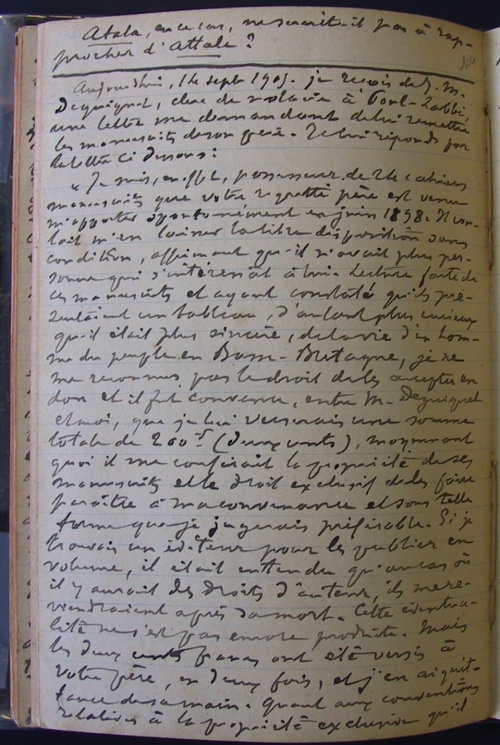 Atala, en ce cas, ne serait-il pas à rap-
procher d'Attale ?
Aujourdhui, 14 sept 1905. je reçois de J. M.
Déguignet, clerc de notaire à Pont-Labbé,
une lettre me demandant de lui remettre
les manuscrits de son père. Je lui réponds par
la lettre ci dessous :
"Je suis, en effet, possesseur de 24 cahiers
manuscrits que votre regretté père est venu
m'apporter spontanément en juin 1898. Il vou-
lait m'en laisser la libre disposition sans
condition, affirmant qu'il n'avait plus per-
sonne qui s'intéressât à lui. Lecture faite de
ces manuscrits et ayant constaté qu'ils pré-
sentaient un tableau, d'autant plus curieux
qu'il était plus sincère, de la vie d'un hom-
me du peuple en Basse-Bretagne, je ne
me reconnus pas le droit de les accepter en
don et il fut convenu, entre M. Déguignet
et moi, que je lui verserais une somme
totale de 200 f (deux cents), moyennant
quoi il me confierait la propriété de ses
manuscrits et le droit exclusif de les faire
paraître à ma convenance et sous telle
forme que je jugerais préférable. Si je
trouvais un éditeur pour les publier en
volume, il était entendu qu'au cas où
il y aurait des droits d'auteur, ils me re-
viendraient après sa mort. Cette éventua-
lité ne s'est pas encore produite. Mais
les deux cents francs ont été versés à
votre père, en deux fois, et j'en ai quit-
tance de sa main. Quant aux conventions
relatives à la propriété exclusive qu'il